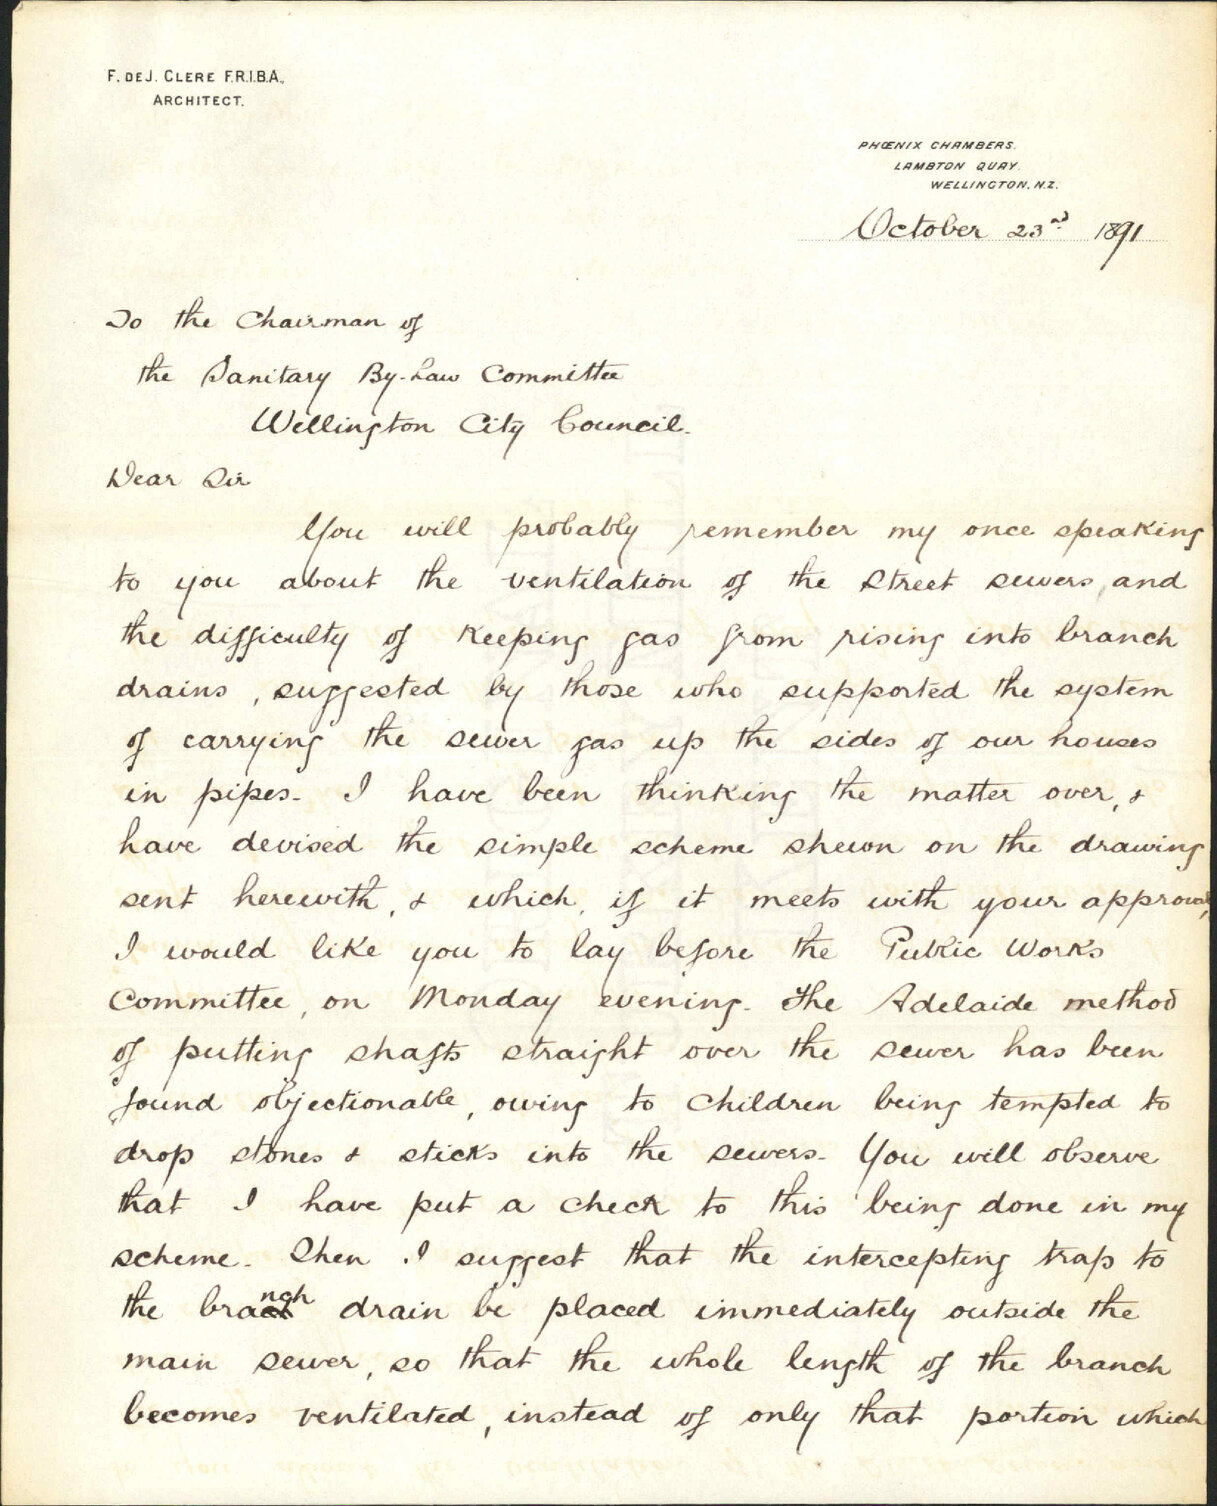 F. DE J. CLERE F.R.I.B.A.,
ARCHITECT.
PHŒNIX CHAMBERS.
LAMBTON QUAY.
WELLINGTON, N.Z.
October 23rd 1891
To the Chairman of
the Sanitary By-Law Committee
Wellington City Council.
Dear Sir
You will probably remember my once speaking
to you about the ventilation of the street sewers, and
the difficulty of keeping gas from rising into branch
drains, suggested by those who supported the system
of carrying the sewer gas up the sides of our houses
in pipes. I have been thinking the matter over, &
have devised the simple scheme shewn on the drawing
sent herewith, & which, if it meets with your approval,
I would like you to lay before the Public Works
Committee, on Monday evening. The Adelaide method
of putting shafts straight over the sewer has been
found objectionable, owing to children being tempted to
drop stones & sticks into the sewers. You will observe
that I have put a check to this being done in my
scheme. Then I suggest that the intercepting trap to
the branch drain be placed immediately outside the
main sewer, so that the whole length of the branch
becomes ventilated, instead of only that portion which